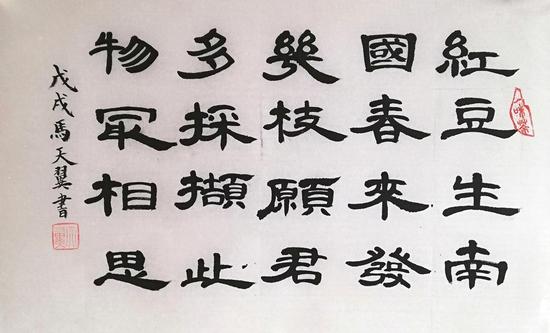 紅豆生南
國春來發
幾枝願君
多採擷此
物冣相思
戊戌馬天翼書